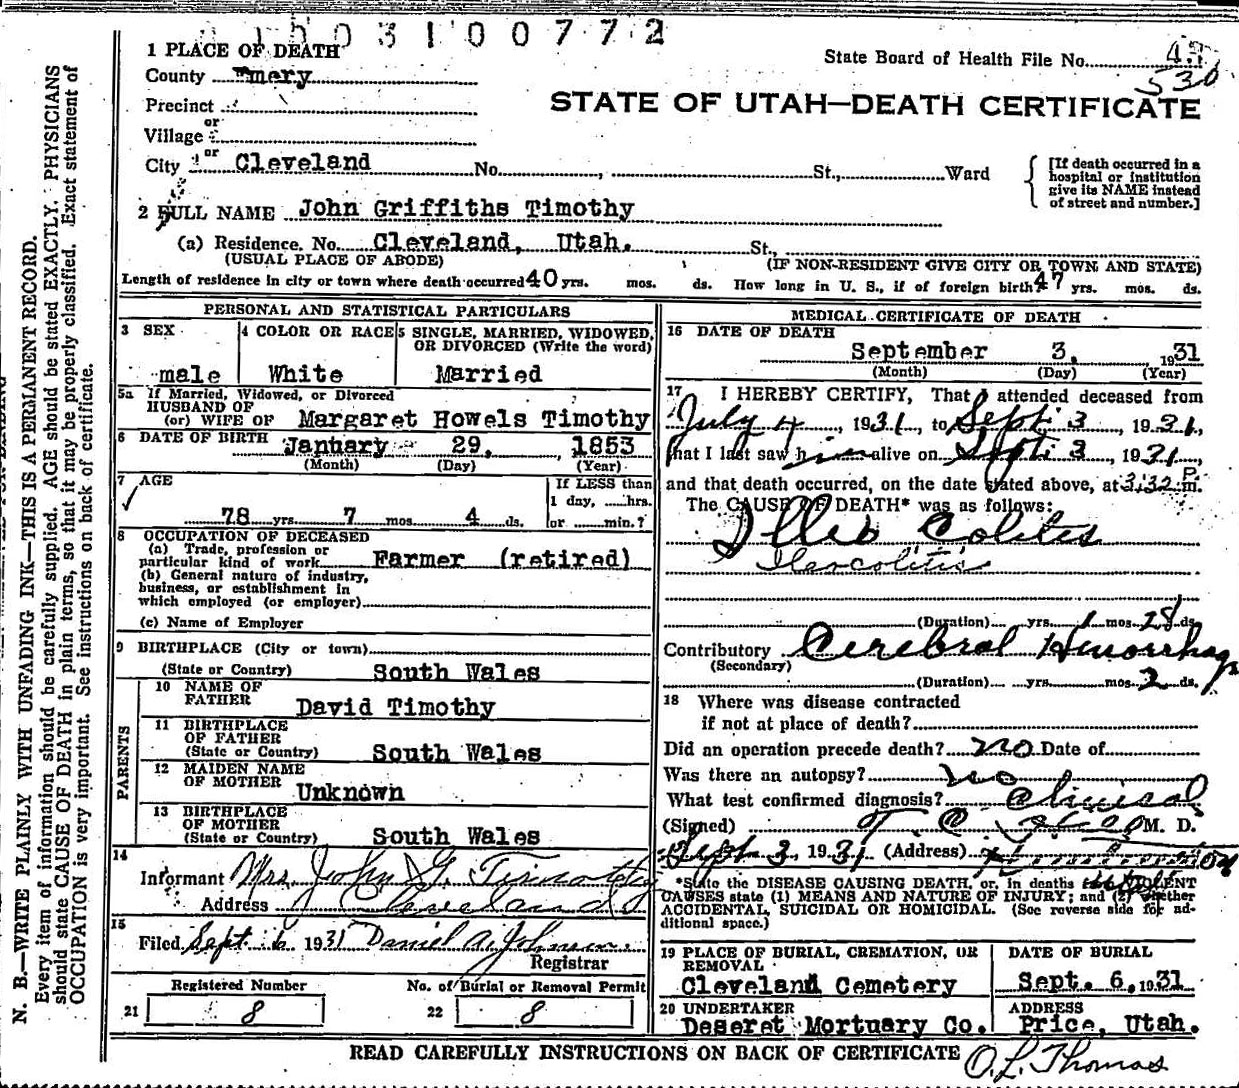 0 3 1 0 0 7 7 2
1 PLACE OF DEATH
State Board of Health File No.
530
County Emery
STATE OF UTAH—DEATH CERTIFICATE
Precinct
or
Village
or
City Cleveland No. , St., Ward
[If death occurred in a hospital or institution give its NAME instead of street and number.]
2 FULL NAME John Griffiths Timothy
(a) Residence. No. Cleveland, Utah. St.,
(USUAL PLACE OF ABODE) (IF NON-RESIDENT GIVE CITY OR TOWN AND STATE)
Length of residence in city or town where death occurred 40 yrs. mos. ds. How long in U. S., if of foreign birth 47 yrs. mos. ds.
PERSONAL AND STATISTICAL PARTICULARS
3 SEX
male
4 COLOR OR RACE
White
5 SINGLE, MARRIED, WIDOWED, OR DIVORCED (Write the word)
Married
5a If Married, Widowed, or Divorced
HUSBAND OF
(or) WIFE OF Margaret Howels Timothy
6 DATE OF BIRTH January 29, , 1853
(Month) (Day) (Year)
7 AGE
If LESS than
1 day, hrs.
78 yrs. 7 mos. 4 ds. or min.?
8 OCCUPATION OF DECEASED
(a) Trade, profession or
particular kind of work Farmer (retired)
(b) General nature of industry,
business, or establishment in
which employed (or employer)
(c) Name of Employer
9 BIRTHPLACE (City or town)
(State or Country) South Wales
PARENTS
10 NAME OF
FATHER David Timothy
11 BIRTHPLACE
OF FATHER
(State or Country) South Wales
12 MAIDEN NAME
OF MOTHER Unknown
13 BIRTHPLACE
OF MOTHER
(State or Country) South Wales
14
Informant Mrs. John G. Timothy
Address Cleveland
15
Filed Sept 6 1931 Daniel A. Johnson.
Registrar
Registered Number
21 8
No. of Burial or Removal Permit
22 8
MEDICAL CERTIFICATE OF DEATH
16 DATE OF DEATH
September 3, 1931
(Month) (Day) (Year)
17 I HEREBY CERTIFY, That I attended deceased from
July 4, 1931, to Sept 3, 1931,
that I last saw him alive on Sept 3, 1931,
and that death occurred, on the date stated above, at 3:32 P. m.
The CAUSE OF DEATH* was as follows:
Illeo Colites
Ileocolitis
(Duration) yrs. 1 mos. 28 ds.
Contributory Cerebral Hemorrhage
(Secondary)
(Duration) yrs. mos. 2 ds.
18 Where was disease contracted
if not at place of death?
Did an operation precede death? no Date of
Was there an autopsy? no
What test confirmed diagnosis? Clinical
(Signed) M. D.
Sept 3, 1931 (Address)
*State the DISEASE CAUSING DEATH, or, in deaths from VIOLENT
CAUSES state (1) MEANS AND NATURE OF INJURY; and (2) whether
ACCIDENTAL, SUICIDAL OR HOMICIDAL. (See reverse side for ad-
ditional space.)
19 PLACE OF BURIAL, CREMATION, OR
REMOVAL
Cleveland Cemetery
DATE OF BURIAL
Sept. 6, 1931
20 UNDERTAKER
Deseret Mortuary Co.
ADDRESS
Price, Utah.
READ CAREFULLY INSTRUCTIONS ON BACK OF CERTIFICATE
O. L. Thomas
N. B.—WRITE PLAINLY WITH UNFADING INK—THIS IS A PERMANENT RECORD.
Every item of information should be carefully supplied. AGE should be stated EXACTLY. PHYSICIANS
should state CAUSE OF DEATH in plain terms, so that it may be properly classified. Exact statement of
OCCUPATION is very important. See instructions on back of certificate.